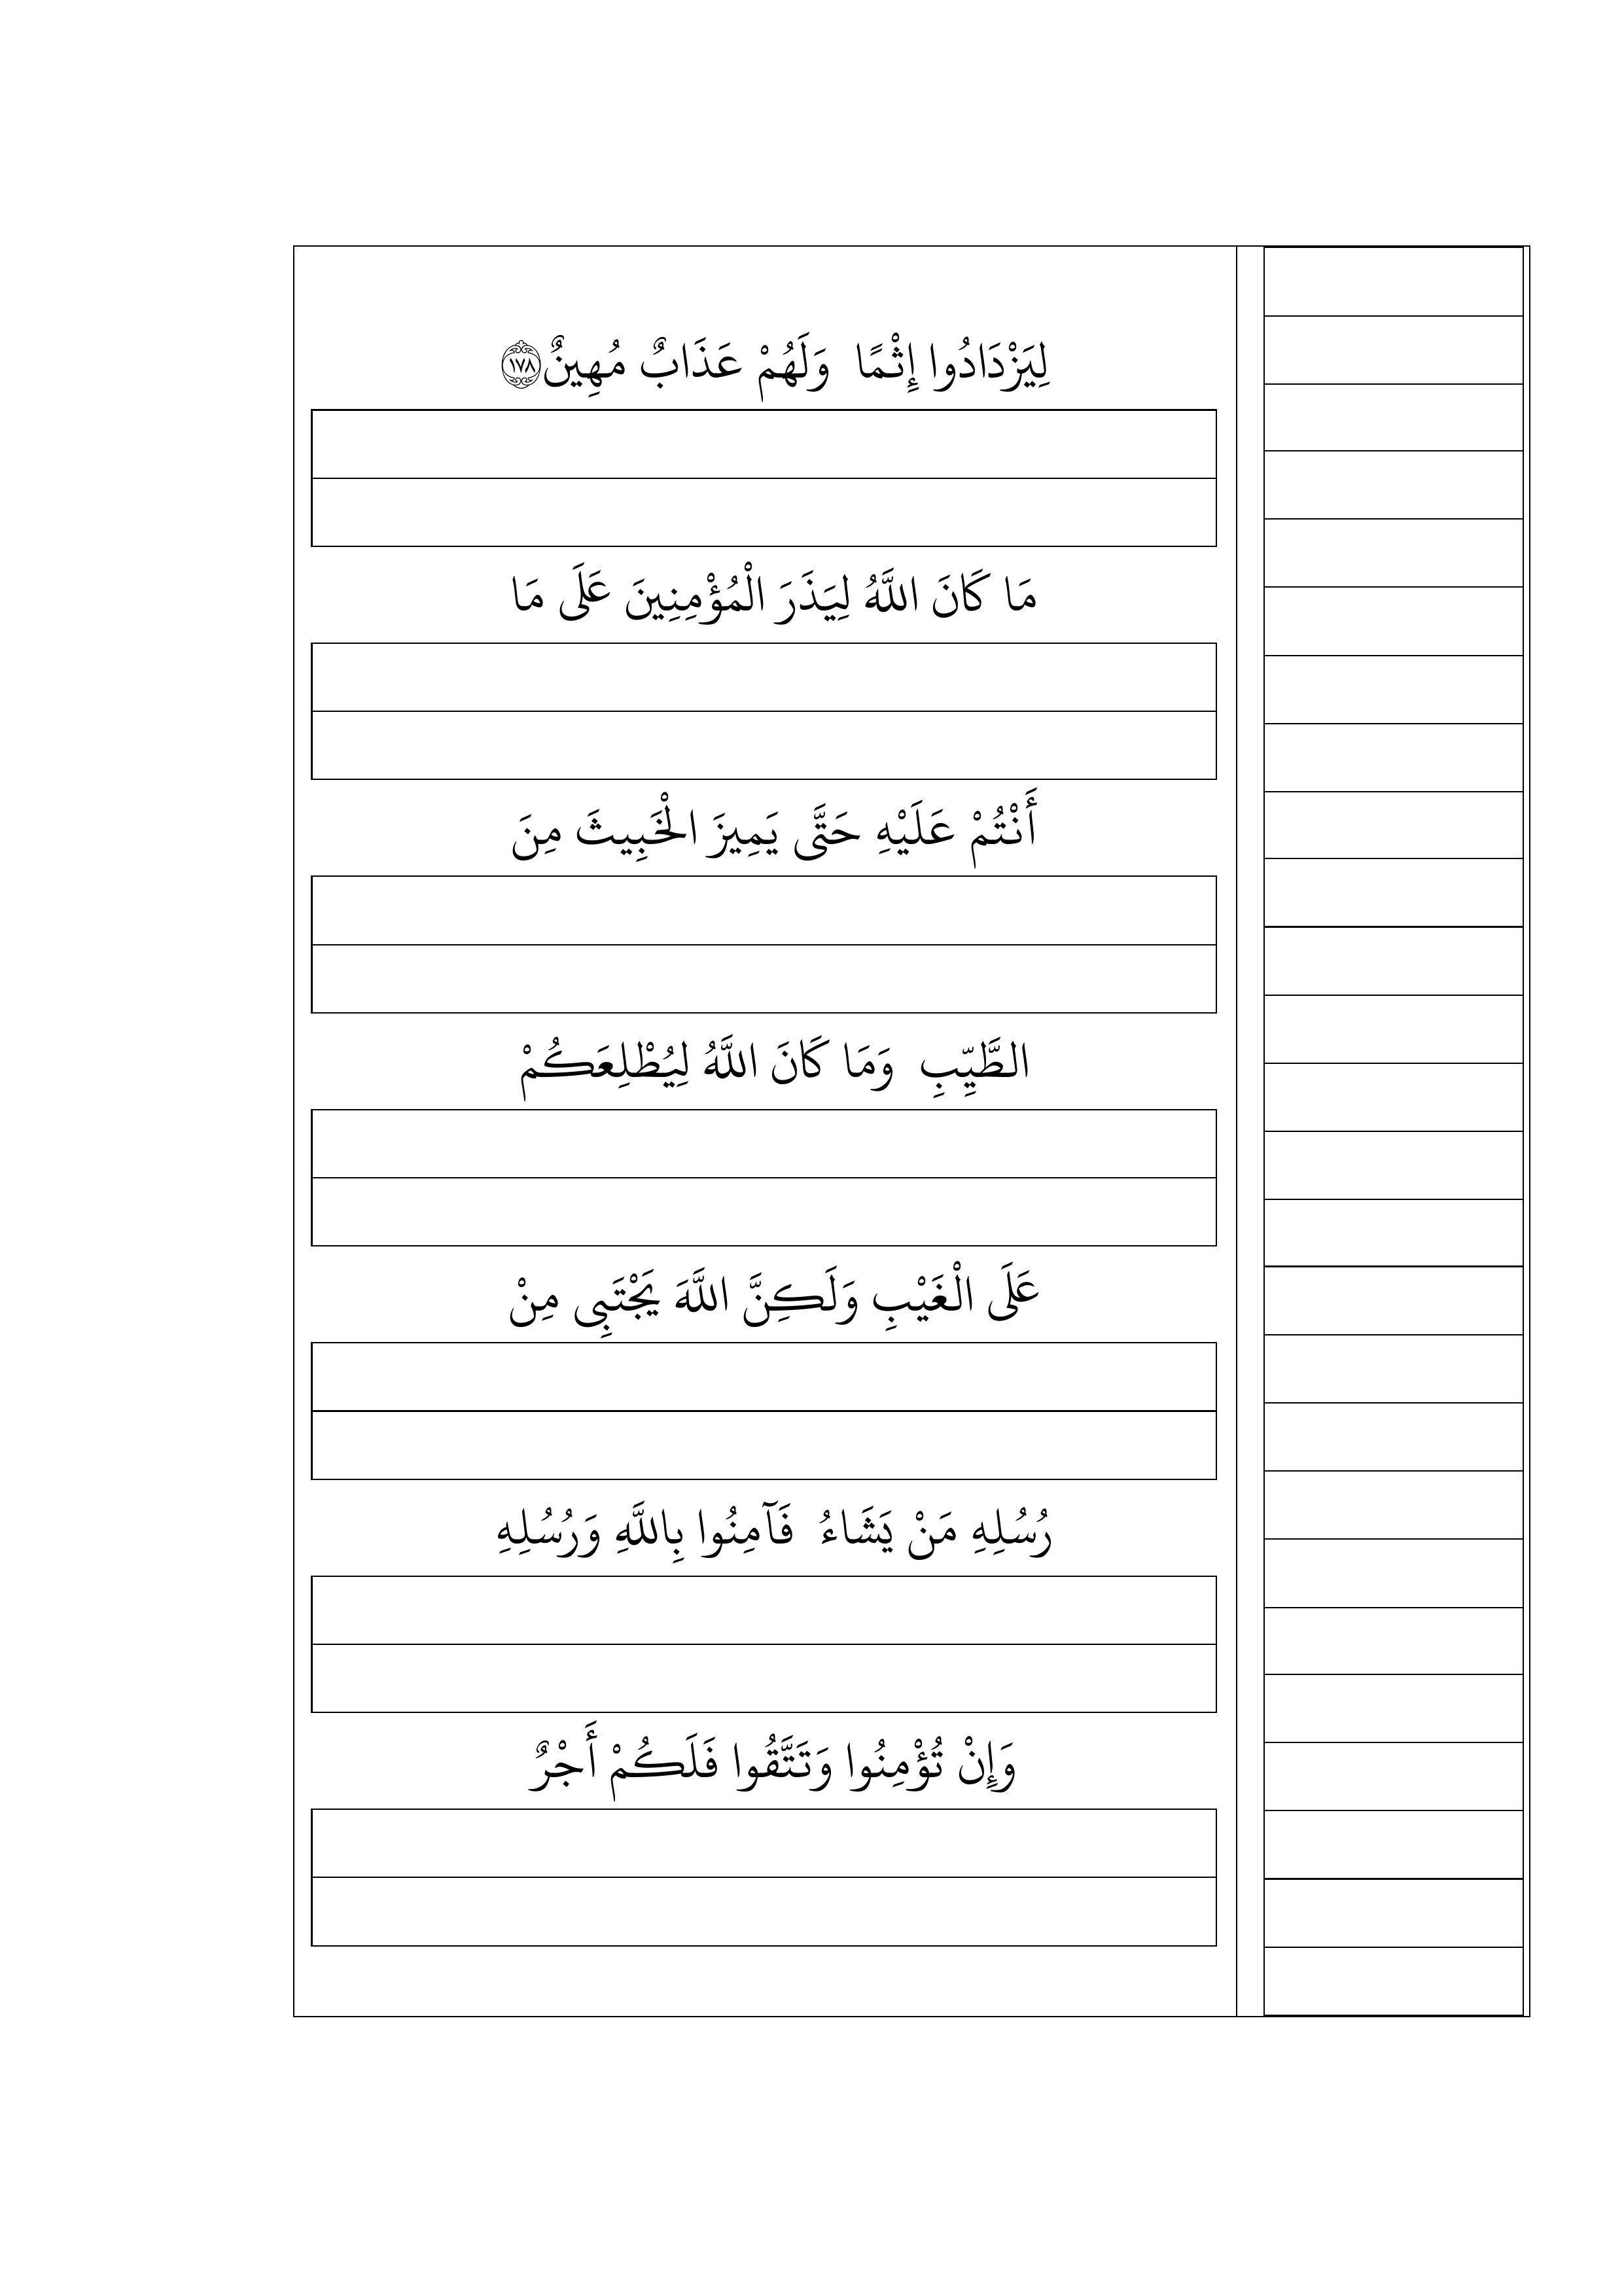 لِيَزْدَادُوا إِثْمًا وَلَهُمْ عَذَابٌ مُهِينٌ ١٧٨
مَا كَانَ اللَّهُ لِيَذَرَ الْمُؤْمِنِينَ عَلَى مَا
أَنْتُمْ عَلَيْهِ حَتَّى يَمِيزَ الْخَبِيثَ مِنَ
الطَّيِّبِ وَمَا كَانَ اللَّهُ لِيُطْلِعَكُمْ
عَلَى الْغَيْبِ وَلَكِنَّ اللَّهَ يَجْتَبِي مِنْ
رُسُلِهِ مَنْ يَشَاءُ فَآمِنُوا بِاللَّهِ وَرُسُلِهِ
وَإِنْ تُؤْمِنُوا وَتَتَّقُوا فَلَكُمْ أَجْرٌ